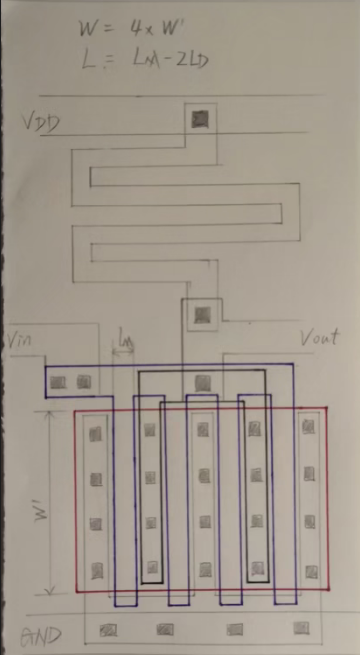 W = 4 x W'
L = LM - 2LD
VDD
Vin
LM
Vout
W'
GND